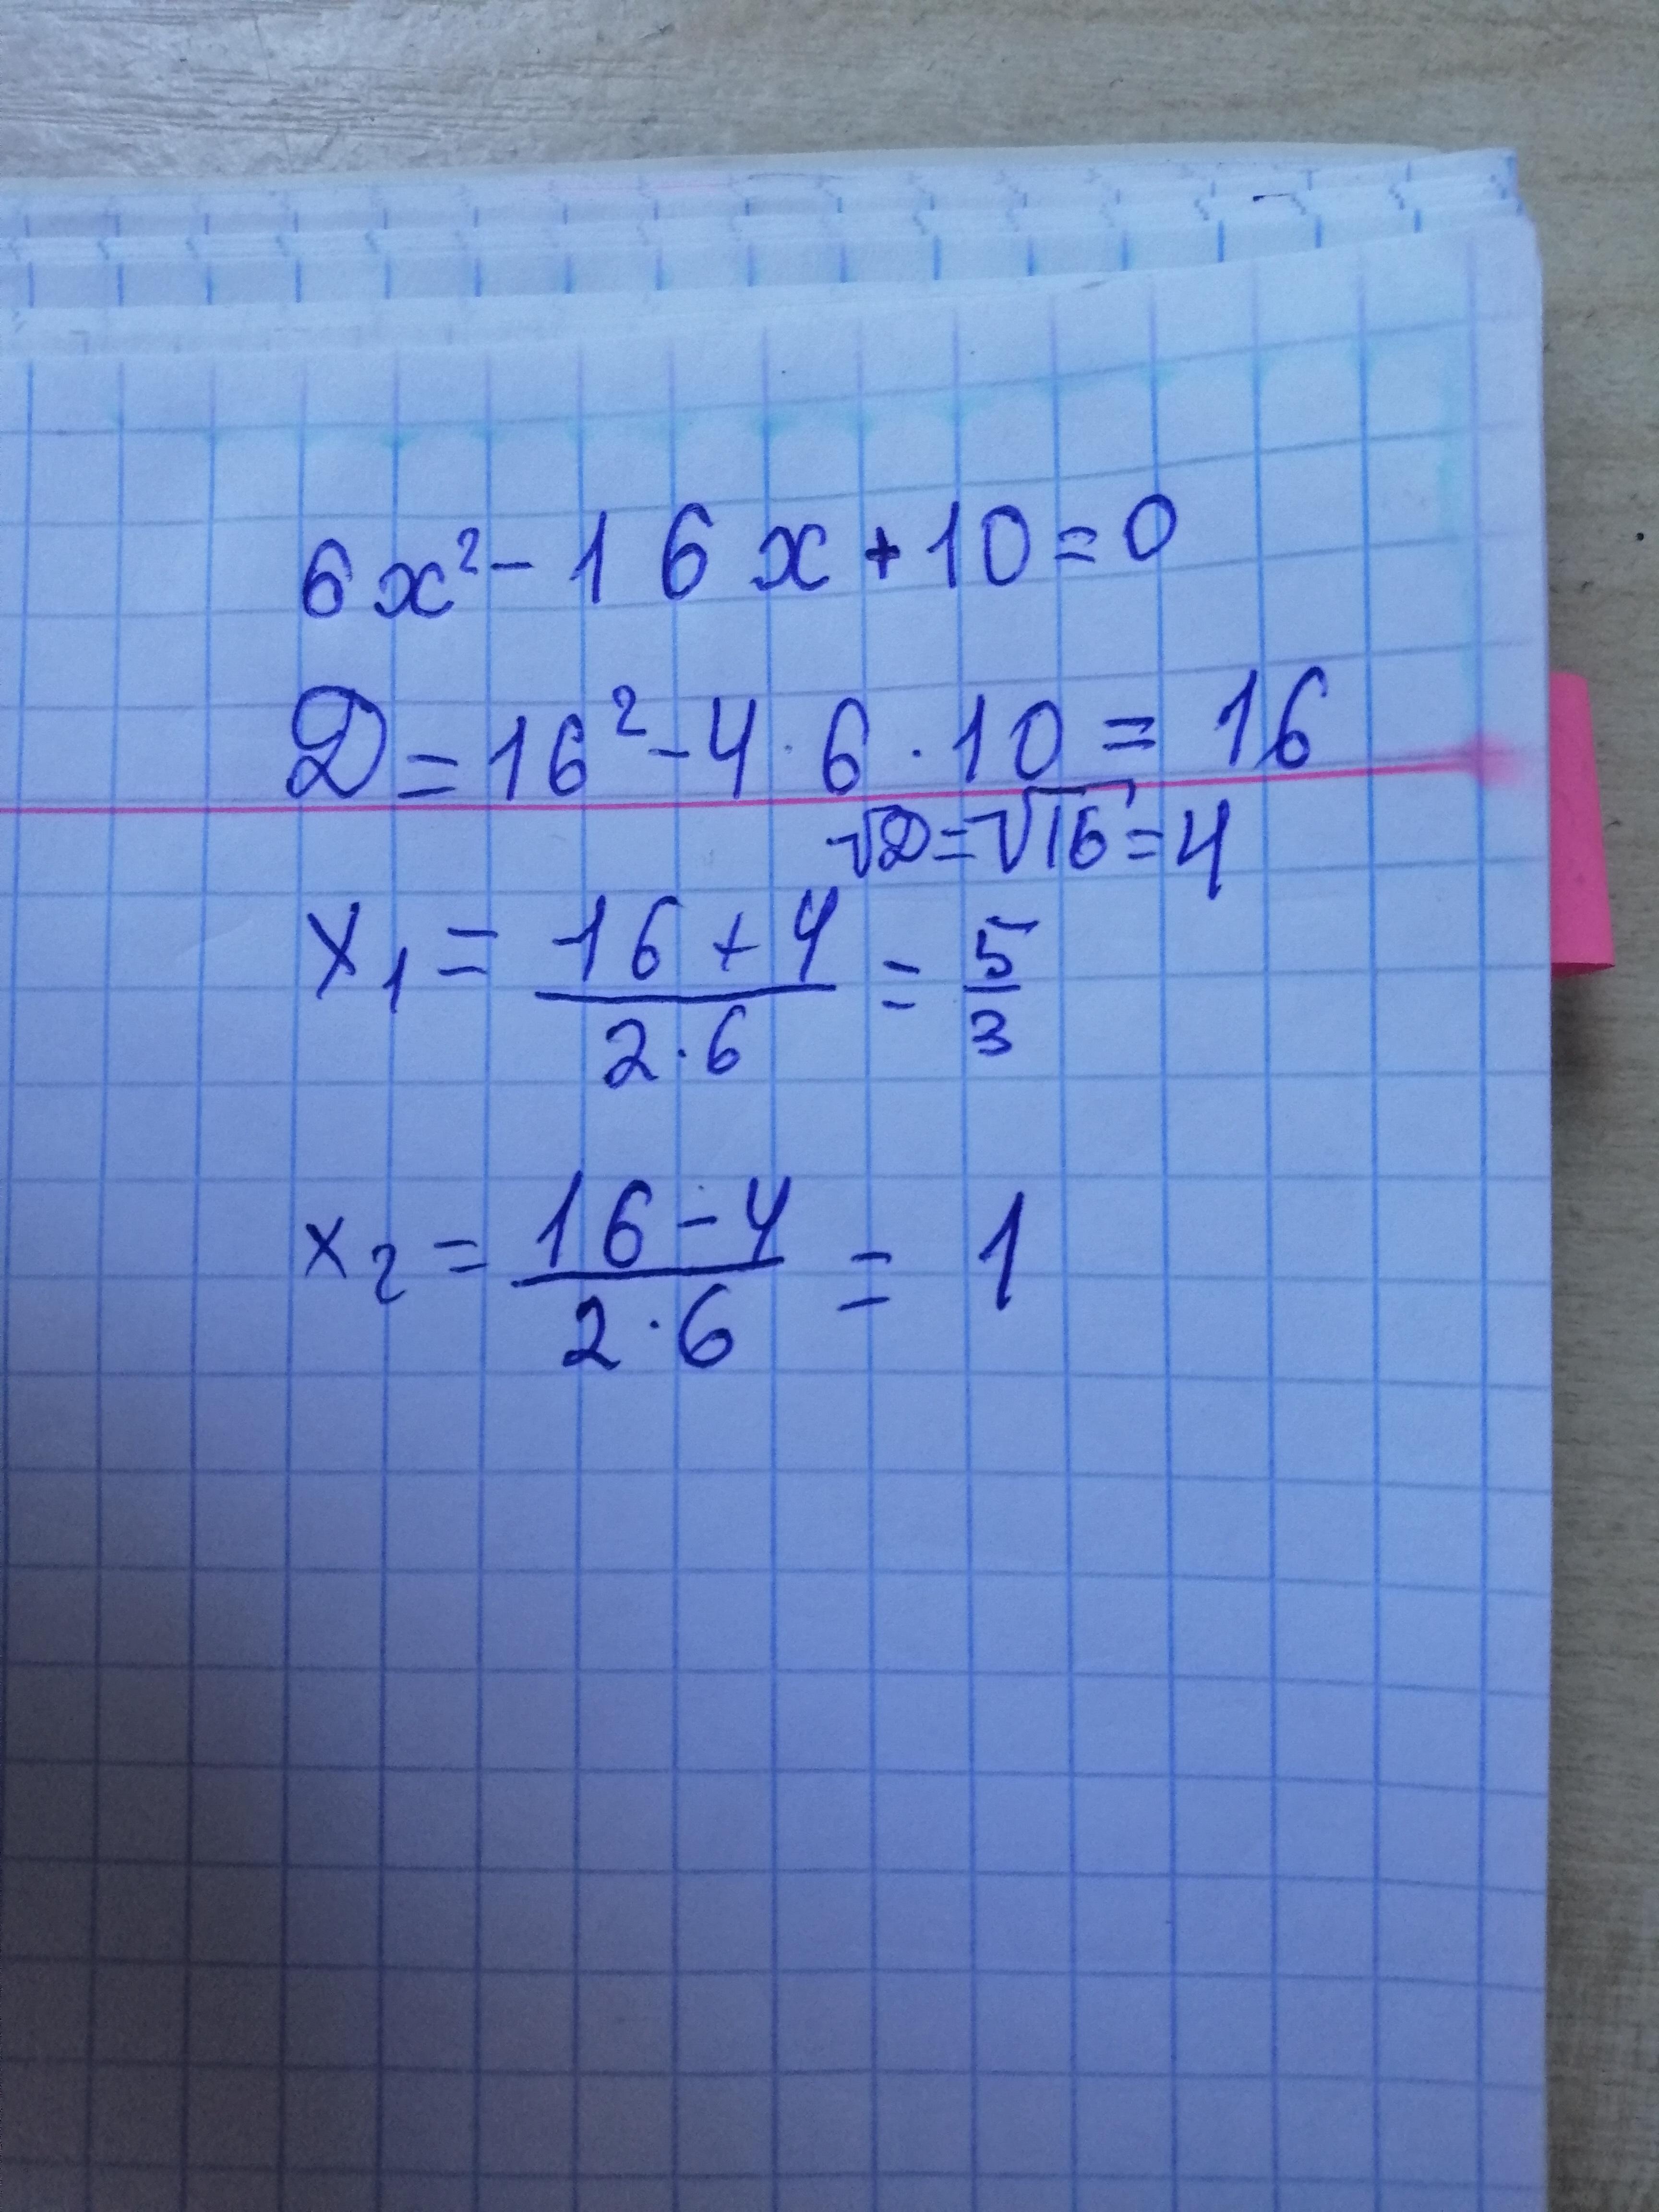 6x² - 16x + 10 = 0
D = 16² - 4 · 6 · 10 = 16
√D = √16 = 4
x₁ = (16 + 4)/(2 · 6) = 5/3
x₂ = (16 - 4)/(2 · 6) = 1